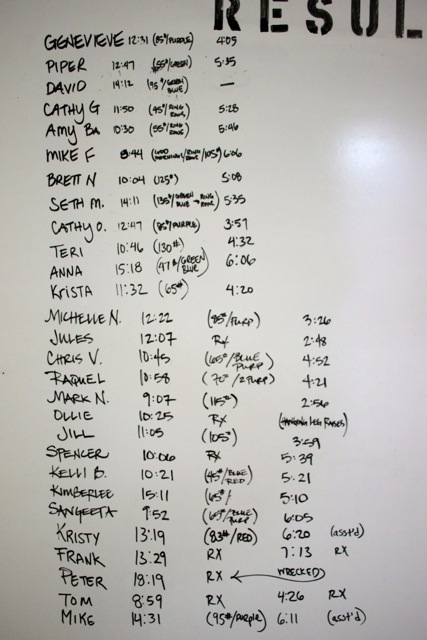 RESUL
GENEVIEVE 12:31 (85#/PURPLE) 4:05
PIPER 12:47 (55#/GREEN) 5:35
DAVID 14:12 (95#/GREEN BLUE) —
CATHY G 11:50 (45#/RING ROWS) 5:28
AMY BA 10:30 (55#/RING ROWS) 5:46
MIKE F 8:44 RING ROWS/105#) 6:06
BRETT N 10:04 (125#) 5:08
SETH M. 14:11 (135#/GREEN BLUE → RING ROWS) 5:35
CATHY O. 12:47 (85#/PURPLE) 3:57
TERI 10:46 (130#) 4:32
ANNA 15:18 (47#/GREEN BLUE) 6:06
KRISTA 11:32 (65#) 4:20
MICHELLE N. 12:22 (85#/PURP) 3:26
JULES 12:07 RX 2:48
CHRIS V. 10:45 (65#/BLUE PURP) 4:52
RAQUEL 10:58 (70#/2 PURP) 4:21
MARK N. 9:07 (115#) 2:56
OLLIE 10:25 RX (HANGING LEG RAISES)
JILL 11:05 (105#) 3:59
SPENCER 10:06 RX 5:39
KELLI B. 10:21 (45#/BLUE RED) 5:21
KIMBERLEE 15:11 (65#/ 5:10
SANGEETA 9:52 (65#/BLUE PURP) 6:05
KRISTY 13:19 (83#/RED) 6:20 (asst'd)
FRANK 13:29 RX 7:13 RX
PETER 18:19 RX ← WRECKED)
TOM 8:59 RX 4:26 RX
MIKE 14:31 (95#/PURPLE) 6:11 (asst'd)